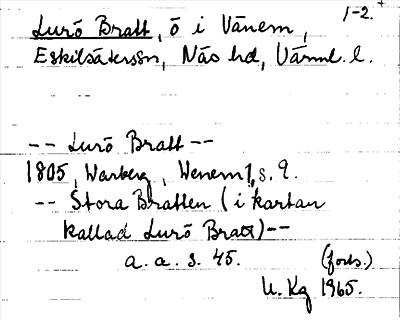 1-2.
Lurö Bratt, ö i Vänern,
Eskilsäterssn, Näs hd, Värml. l.
-- Lurö Bratt --
1805, Warberg, Wenern 1, s. 9.
-- Stora Bratten (i kartan
kallad Lurö Bratt) --
a. a. s. 45.
(forts.)
U. Kg 1965.